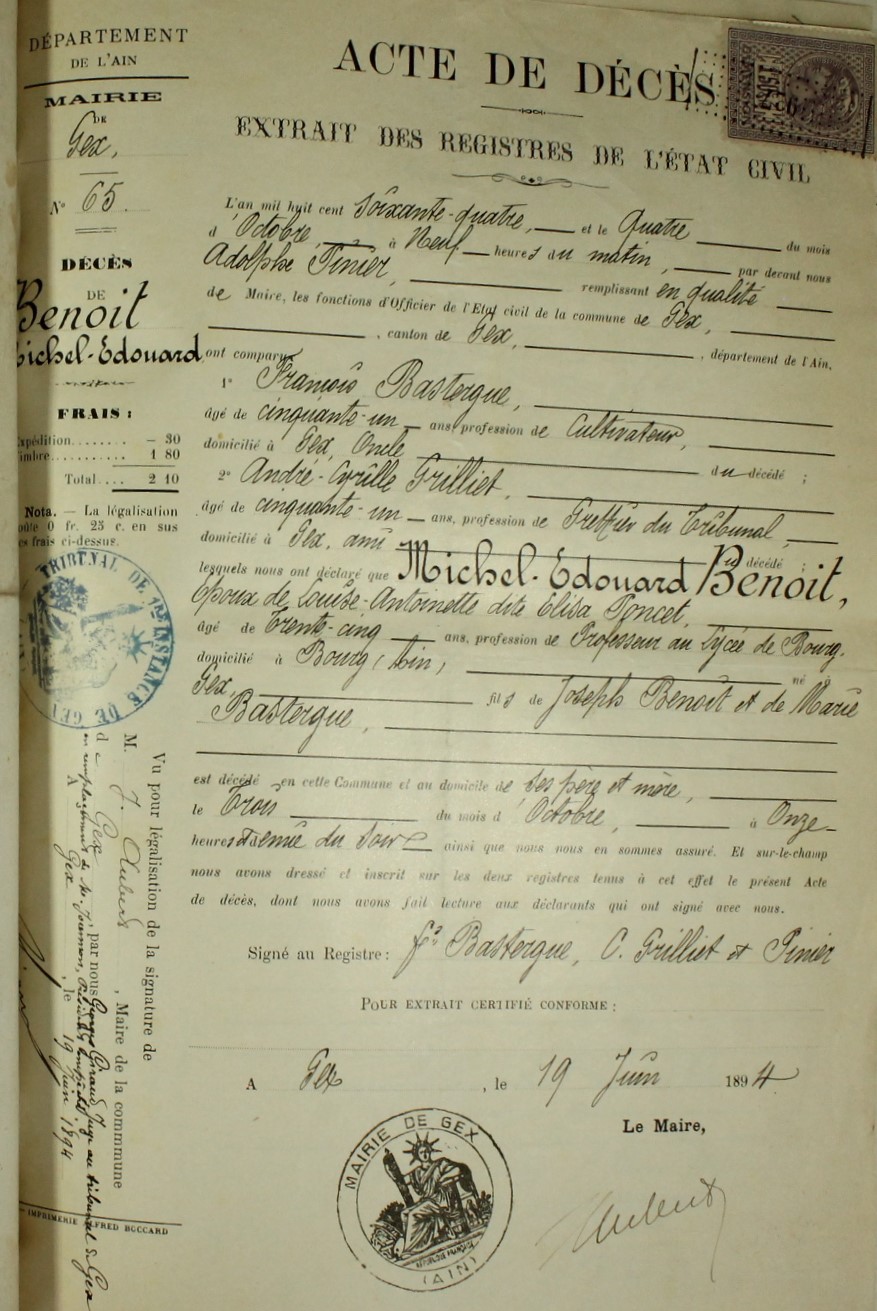 DÉPARTEMENT
DE L'AIN
MAIRIE
DE
Gex,
N° 65.
DÉCÈS
DE
Benoit
Michel-Edouard
FRAIS :
Expédition........ — 30
Timbre........... 1 80
Total.... 2 10
Nota. — La légalisation
coûte 0 fr. 25 c. en sus
des frais ci-dessus.
TRIBUNAL DE 1RE INSTANCE DE GEX
Vu pour légalisation de la signature de
M. J. Aubert, Maire de la commmune
d e Gex, par nous Georges Giraud, Juge au tribunal de Gex
en remplacement de M.
A Gex, le 19 Juin 1894
IMPRIMERIE ALFRED BOCCARD
ACTE DE DÉCÈS
EXTRAIT DES REGISTRES DE L'ÉTAT CIVIL
L'an mil huit cent Soixante-quatre, et le Quatre du mois
d'Octobre, à Neuf heures du matin, par devant nous
Adolphe Pinier, remplissant en qualité
de Maire, les fonctions d'Officier de l'Etat civil de la commune de Gex,
, canton de Gex, , département de l'Ain,
ont comparu
1° François Bastergue,
âgé de cinquante-un ans, profession de Cultivateur,
domicilié à Gex, Oncle du décédé ;
2° André-Cyrille Grilliet,
âgé de cinquante-un ans, profession de Greffier du Tribunal,
domicilié à Gex, ami du décédé ;
lesquels nous ont déclaré que Michel-Edouard Benoit,
Epoux de Louise-Antoinette dite Elisa Poncet,
âgé de Trente-cinq ans, profession de Professeur au Lycée de Bourg.
domicilié à Bourg, (Ain, né à
Gex, fils de Joseph Benoit et de Marie
Bastergue,
est décédé en cette Commune et au domicile de ses père et mère,
le Trois du mois d'Octobre, à Onze
heures et demie du Soir ainsi que nous nous en sommes assuré. Et sur-le-champ
nous avons dressé et inscrit sur les deux registres tenus à cet effet le présent Acte
de décès, dont nous avons fait lecture aux déclarants qui ont signé avec nous.
Signé au Registre : fs Bastergue, C. Grilliet et Pinier
POUR EXTRAIT CERTIFIÉ CONFORME :
A Gex, le 19 Juin 1894
Le Maire,
Aubert
MAIRIE DE GEX
RÉPUBLIQUE FRANÇAISE
(AIN)